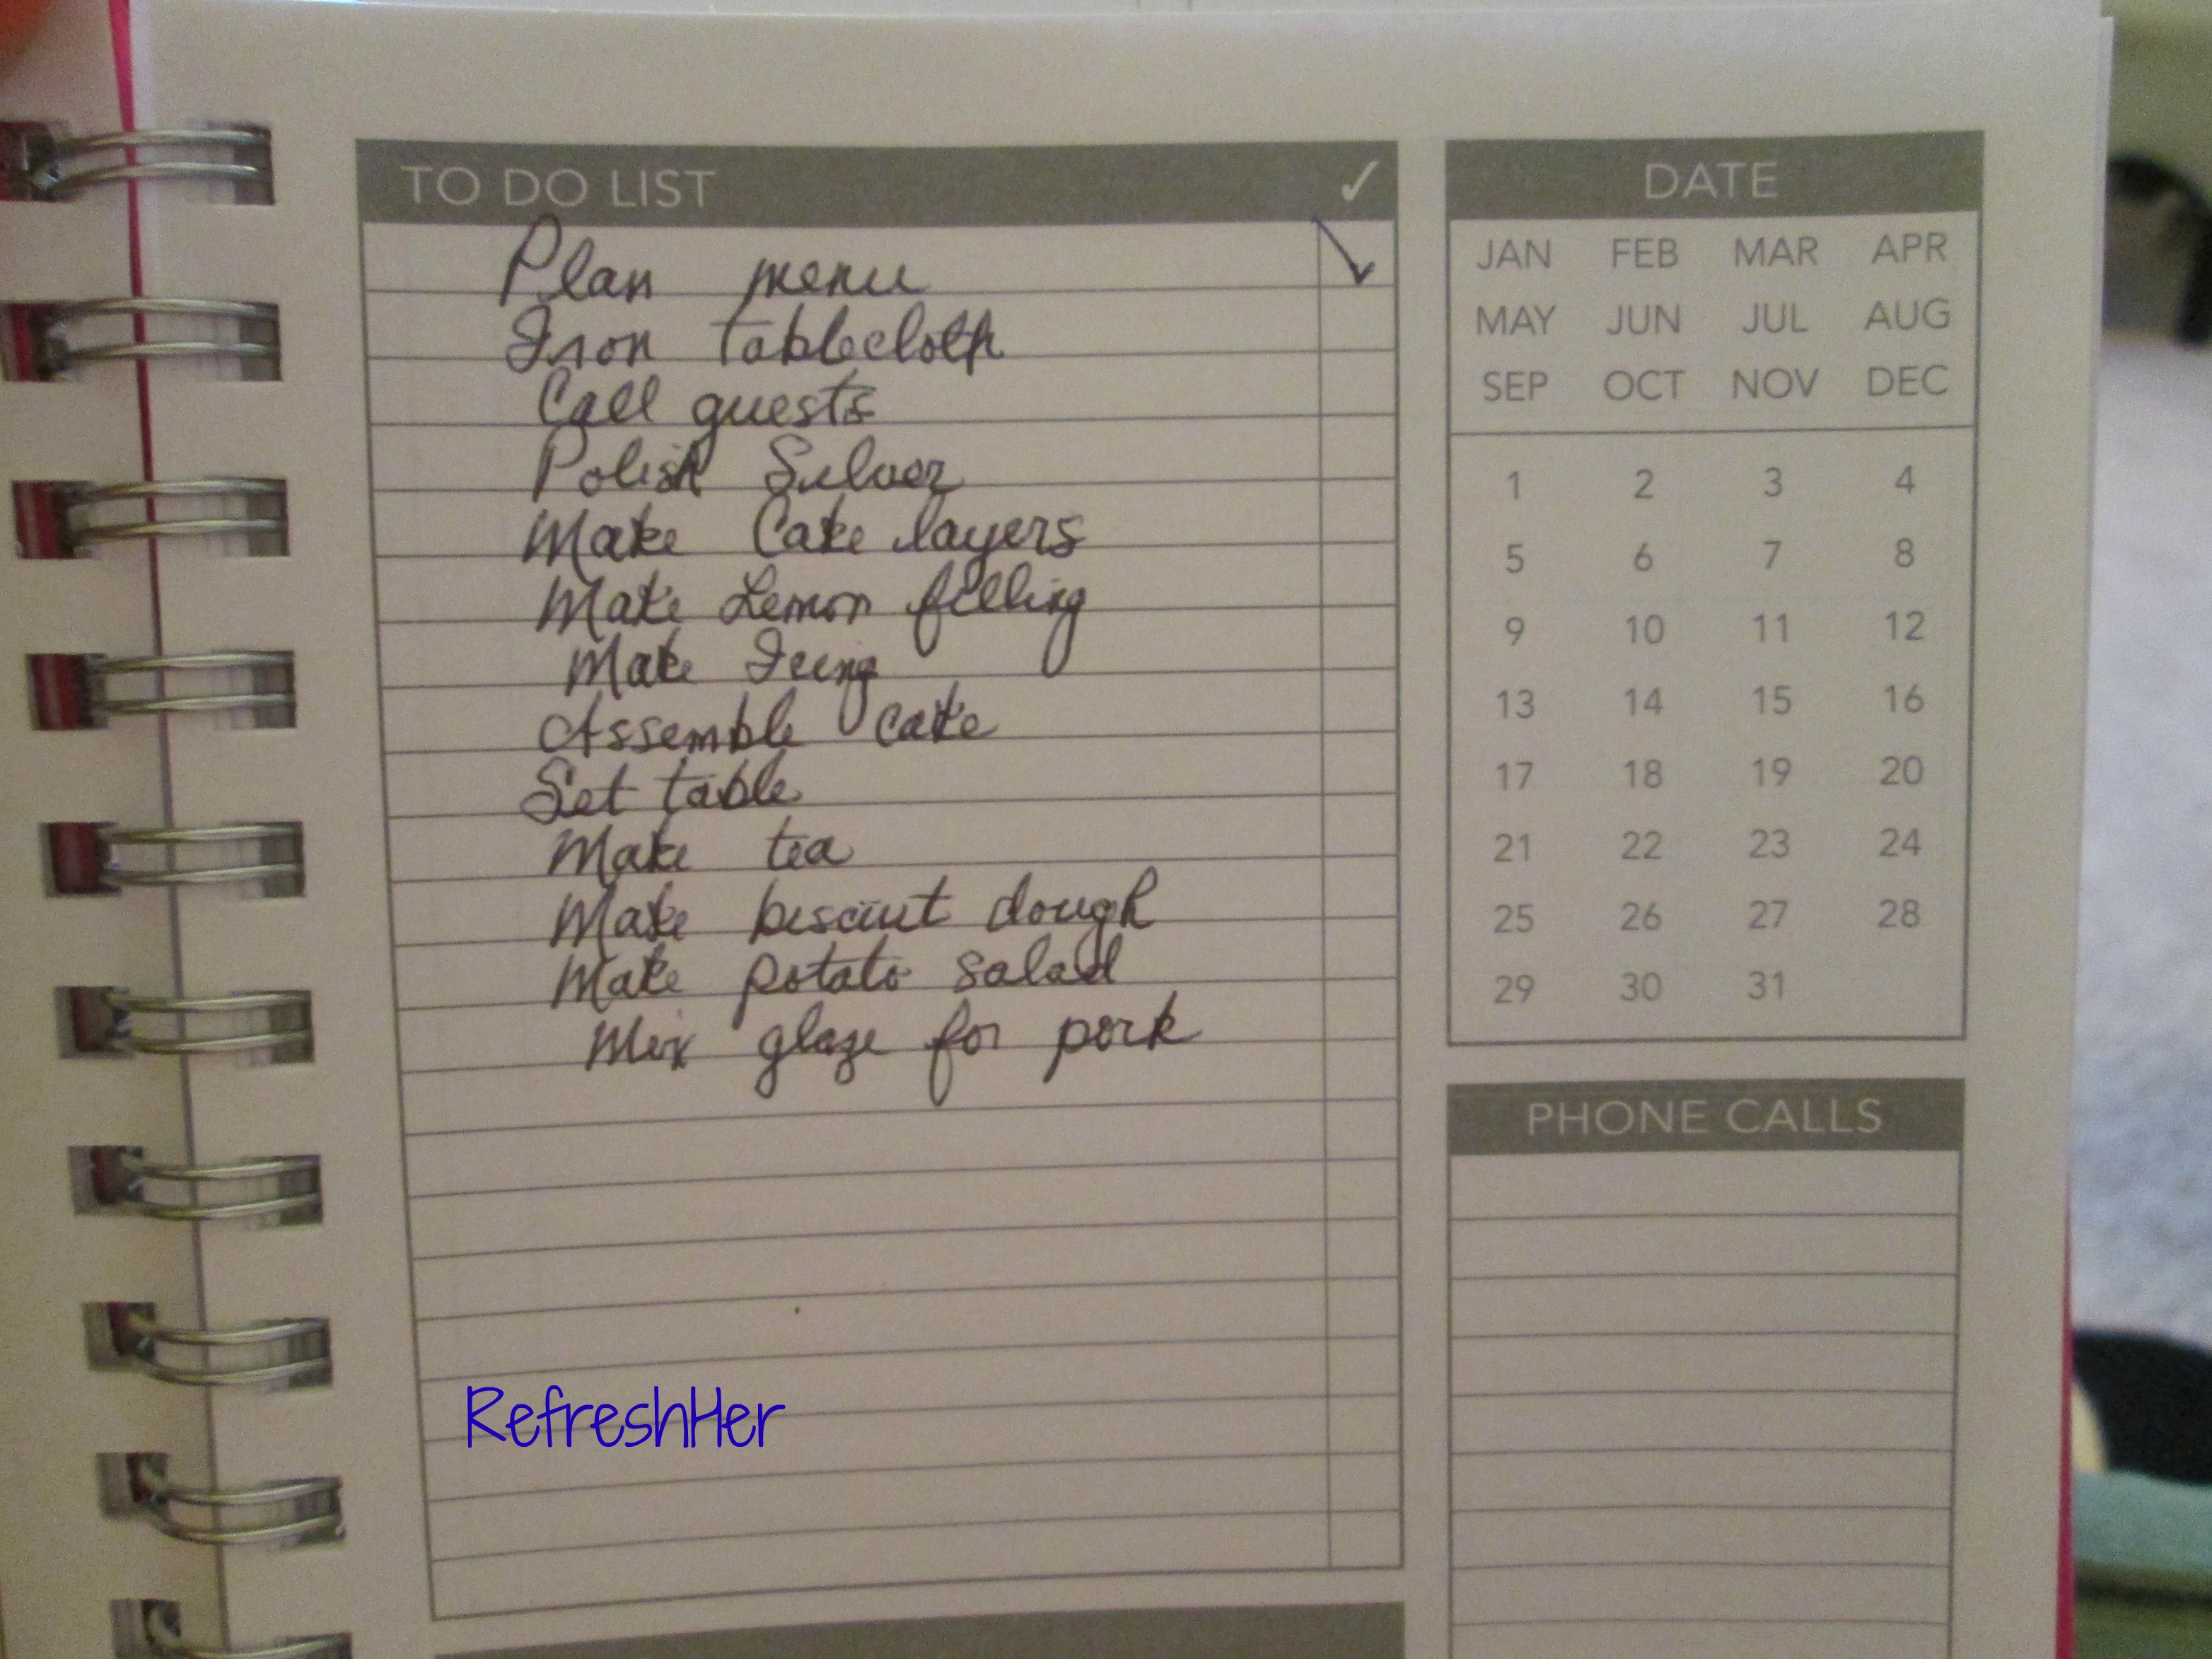 TO DO LIST ✓
Plan menu
Iron Tablecloth
Call guests
Polish Silver
Make Cake layers
Make Lemon filling
Make Icing
Assemble cake
Set table
Make tea
Make biscuit dough
Make potato salad
Mix glaze for pork
RefreshHer
DATE
JAN FEB MAR APR
MAY JUN JUL AUG
SEP OCT NOV DEC
1 2 3 4
5 6 7 8
9 10 11 12
13 14 15 16
17 18 19 20
21 22 23 24
25 26 27 28
29 30 31
PHONE CALLS